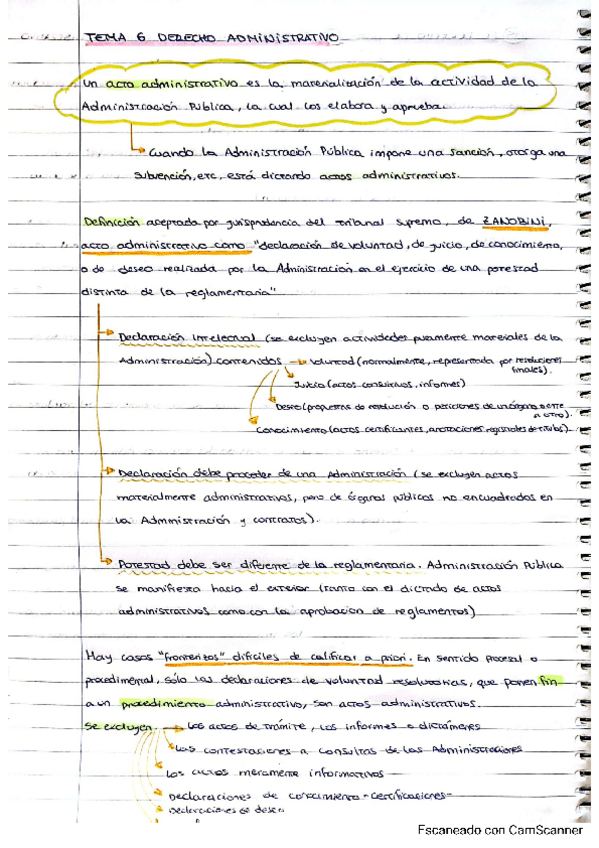 TEMA 6 DERECHO ADMINISTRATIVO
Un acto administrativo es la materialización de la actividad de la
Administración Pública, la cual los elabora y aprueba.
Cuando la Administración Pública impone una sanción, otorga una
subvención, etc, está dictando actos administrativos.
Definición aceptada por jurisprudencia del Tribunal Supremo, de ZANOBINI,
acto administrativo como "declaración de voluntad, de juicio, de conocimiento,
o de deseo realizada por la Administración en el ejercicio de una potestad
distinta de la reglamentaria"
Declaración intelectual (se excluyen actividades puramente materiales de la
Administración) contenidos → Voluntad (normalmente, representada por resoluciones
finales).
Juicio (actos consultivos, informes)
Deseo (propuestas de resolución o peticiones de un órgano o ente
a otro).
Conocimiento (actos certificantes, anotaciones registrales de títulos).
Declaración debe proceder de una Administración (se excluyen actos
materialmente administrativos, pero de órganos públicos no encuadrados en
la Administración y contratos).
Potestad debe ser diferente de la reglamentaria. Administración Pública
se manifiesta hacia el exterior (tanto con el dictado de actos
administrativos como con la aprobación de reglamentos)
Hay casos "fronterizos" difíciles de calificar a priori. En sentido procesal o
procedimental, sólo las declaraciones de voluntad resolutorias, que ponen fin
a un procedimiento administrativo, son actos administrativos.
Se excluyen → Los actos de trámite, los informes o dictámenes
Las contestaciones a consultas de las Administraciones
Los actos meramente informativos
Declaraciones de conocimiento - certificaciones -
Declaraciones de deseo
Escaneado con CamScanner